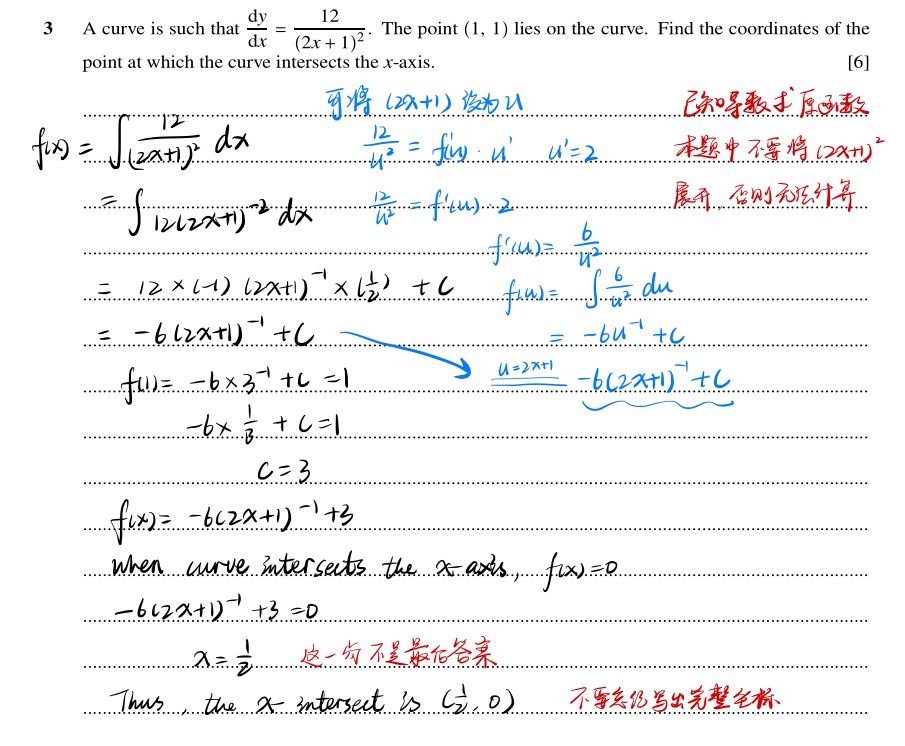 3 A curve is such that dy/dx = 12/(2x + 1)². The point (1, 1) lies on the curve. Find the coordinates of the
point at which the curve intersects the x-axis. [6]
可将 (2x+1) 设为 u
已知导数求原函数
f(x) = ∫ 12/(2x+1)² dx
12/u² = f'(u) · u' u'=2
本题中不要将 (2x+1)²
= ∫ 12(2x+1)⁻² dx
12/u² = f'(u) · 2
展开, 否则无法计算
f'(u) = 6/u²
= 12 × (-1) (2x+1)⁻¹ × (1/2) + C
f(u) = ∫ 6/u² du
= -6(2x+1)⁻¹ + C
= -6u⁻¹ + C
f(1) = -6 × 3⁻¹ + C = 1
u=2x+1 -6(2x+1)⁻¹ + C
-6 × 1/3 + C = 1
C = 3
f(x) = -6(2x+1)⁻¹ + 3
When curve intersects the x-axis, f(x) = 0
-6(2x+1)⁻¹ + 3 = 0
x = 1/2 这一句不是最后答案
Thus, the x-intersect is (1/2, 0) 不要忘记写出完整坐标